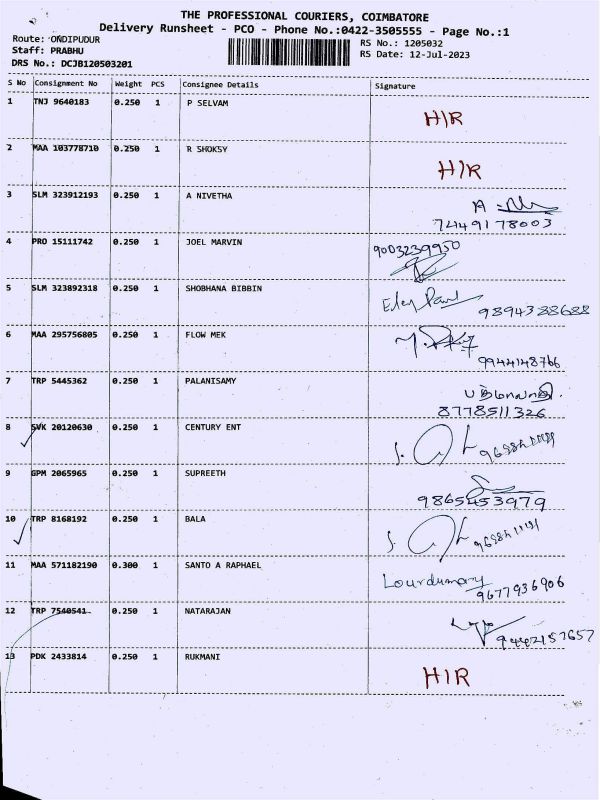 THE PROFESSIONAL COURIERS, COIMBATORE
Delivery Runsheet - PCO - Phone No.:0422-3505555 - Page No.:1
Route: ONDIPUDUR
Staff: PRABHU
DRS No.: DCJB120503201
RS No.: 1205032
RS Date: 12-Jul-2023
S No Consignment No Weight PCS Consignee Details Signature
1 TNJ 9640183 0.250 1 P SELVAM H/R
2 MAA 103778710 0.250 1 R SHOKSY H/R
3 SLM 323912193 0.250 1 A NIVETHA A
7449178003
4 PRO 15111742 0.250 1 JOEL MARVIN 9003239950
5 SLM 323892318 0.250 1 SHOBHANA BIBBIN 9894388688
6 MAA 295756805 0.250 1 FLOW MEK
9944148766
7 TRP 5445362 0.250 1 PALANISAMY
8778511326
8 SVK 20120630 0.250 1 CENTURY ENT
9 GPM 2065965 0.250 1 SUPREETH
9865453979
10 TRP 8168192 0.250 1 BALA
11 MAA 571182190 0.300 1 SANTO A RAPHAEL Lourdumary
9677936906
12 TRP 7540541 0.250 1 NATARAJAN
9442157657
13 PDK 2433814 0.250 1 RUKMANI H/R